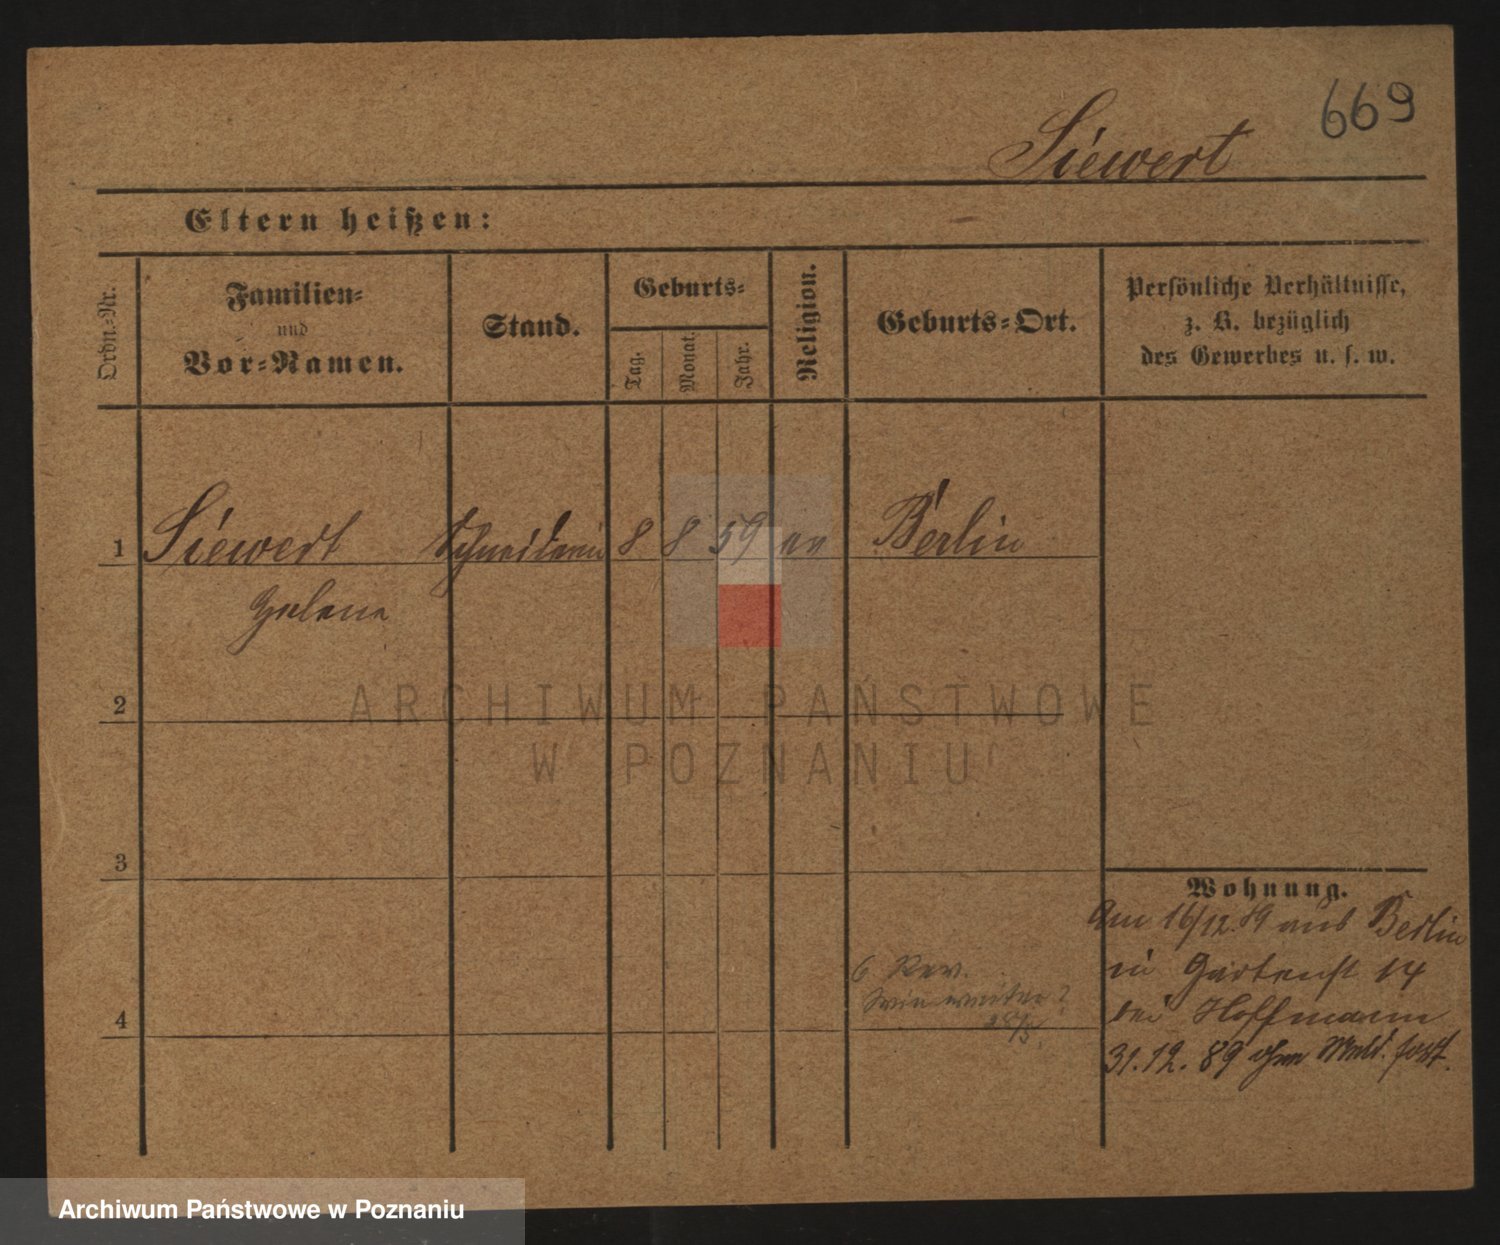 669
Siewert
Eltern heißen:
Ordn.-Nr.
Familien-
und
Vor-Namen.
Stand.
Geburts-
Tag.
Monat.
Jahr.
Religion.
Geburts-Ort.
Persönliche Verhältnisse,
z. B. bezüglich
des Gewerbes u. s. w.
1 Siewert Schneiderin 8 8 59 ev Berlin
Helene
2
3
4
Wohnung.
Am 16/12. 89 aus Berlin
in Gartenst 14
bei Hoffmann
31.12. 89 ohne Meld. fort.
6 Rev.
weiter?
28/3.
ARCHIWUM PAŃSTWOWE
W POZNANIU
Archiwum Państwowe w Poznaniu